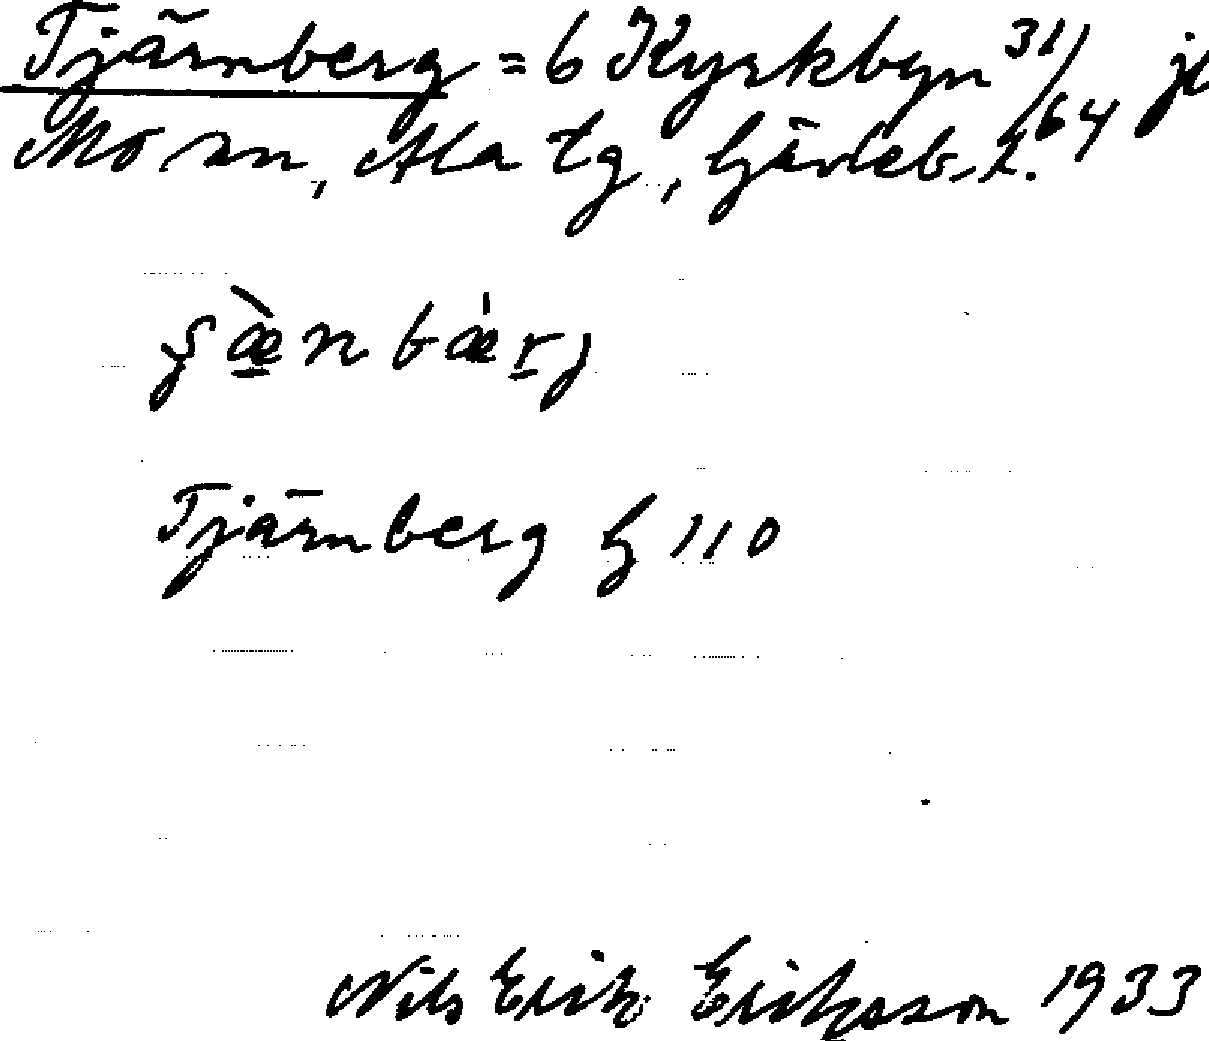 Tjärnberg = 6 Kyrkbyn 31/64 jl
Mo sn, Ala tg, Gävleb. l.
Tjärnberg G 110
Nils Erik Eriksson 1933